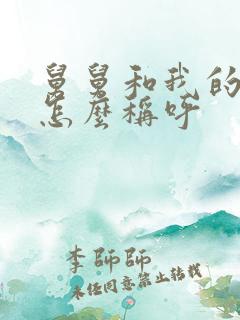 舅舅和我的
怎麼稱呼
李師師
未经同意禁止转载